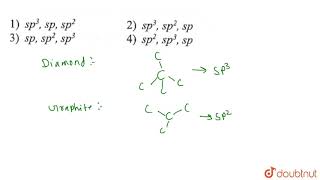 1) sp³, sp, sp² 2) sp³, sp², sp
3) sp, sp², sp³ 4) sp², sp³, sp
Diamond :-
C
C
C C C
→ sp³
Graphite :-
C C
C
C
→ sp²
doubtnut